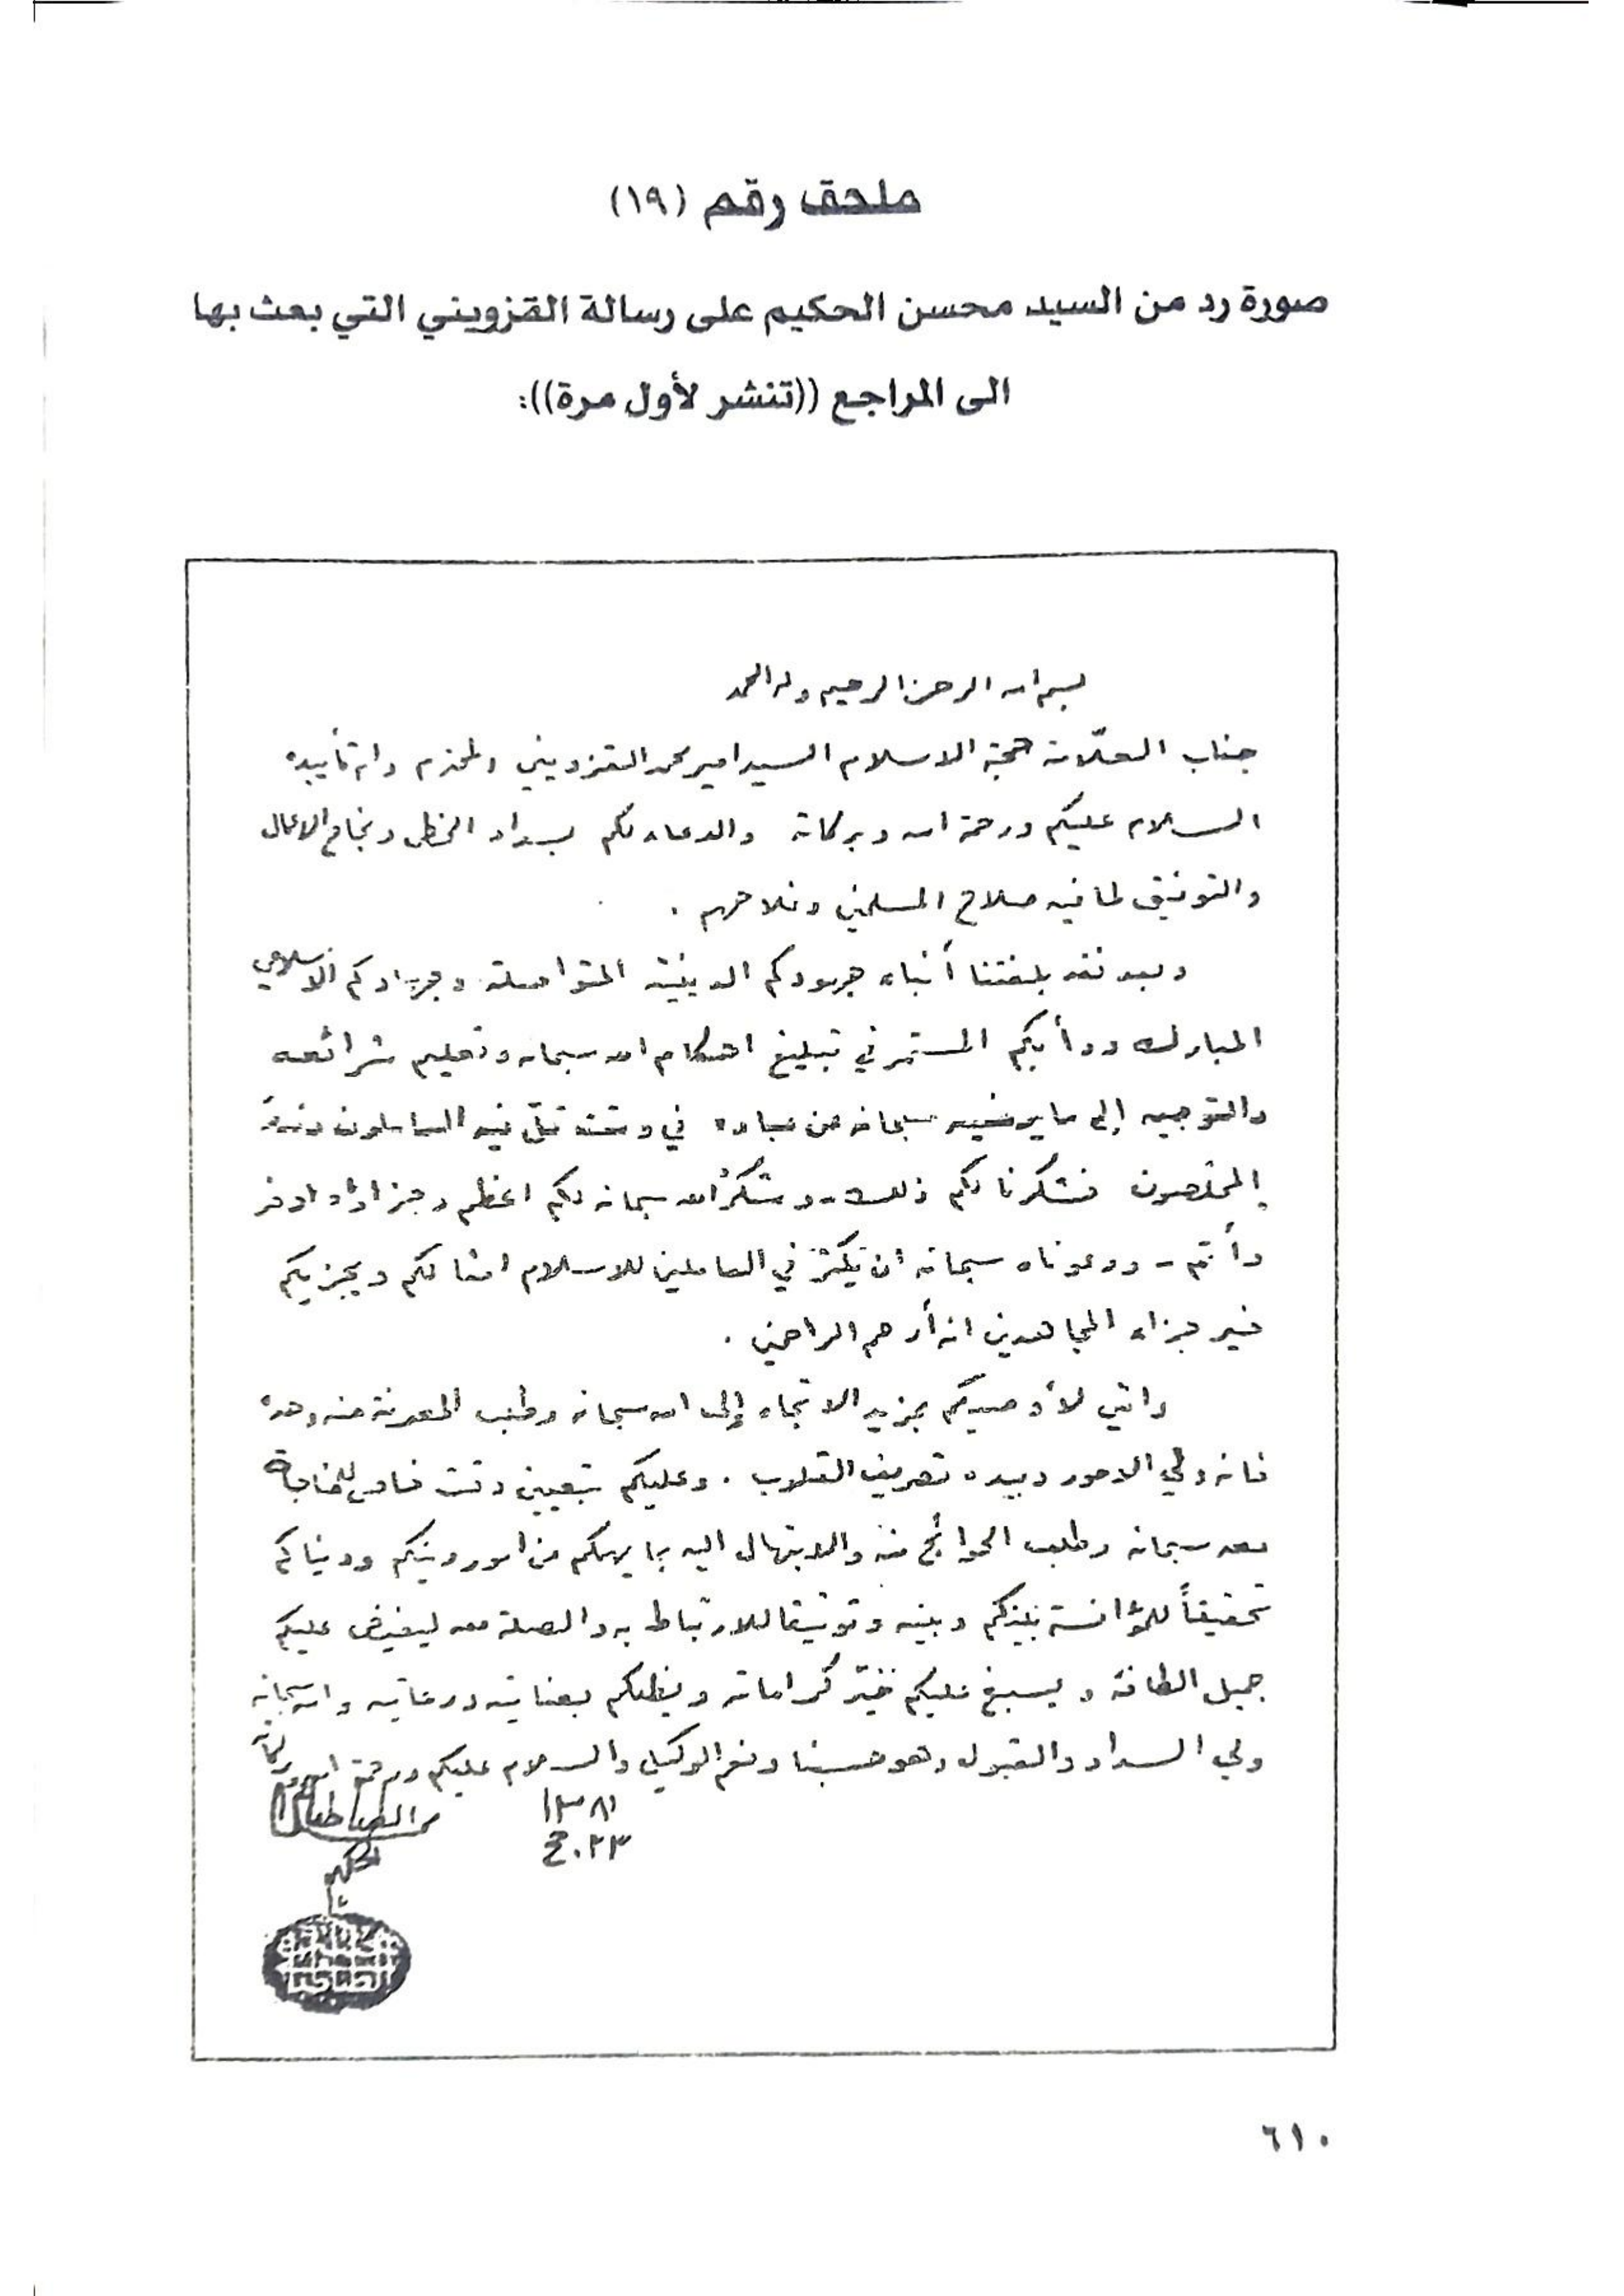 ملحق رقم (١٩)
صورة رد من السيد محسن الحكيم على رسالة القزويني التي بعث بها
الى المراجع ((تنشر لأول مرة)):
بسم الله الرحمن الرحيم وله الحمد
جناب العلّامة حجة الاسلام السيد امير محمد القزويني المحترم دام تأييده
السلام عليكم ورحمة الله وبركاته والدعاء لكم بسداد الخطى ونجاح الاعمال
والتوفيق لما فيه صلاح المسلمين وفلاحهم .
وبعد فقد بلغتنا أنباء جهودكم الدينية المتواصلة وجهادكم الاسلامي
المبارك ودأبكم المستمر في تبليغ احكام الله سبحانه وتعليم شرائعه
والتوجيه إلى ما يرضيه سبحانه من عباده في وقت قلّ فيه العاملون
المخلصون فشكرنا لكم ذلك - وشكرُ الله سبحانه لكم اعظم وجزاؤه اوفر
وأتم - ودعوناه سبحانه ان يكثر في العاملين للاسلام امثالكم ويجزيكم
خير جزاء المجاهدين انه أرحم الراحمين .
وانني لأوصيكم بمزيد الاتجاه إلى الله سبحانه وطلب المعونة منه وحده
فانه ولي الامور وبيده تصريف القلوب . وعليكم بتعيين وقت خاص للمناجاة
معه سبحانه وطلب الحوائج منه والابتهال اليه بما يهمكم من امور دينكم ودنياكم
تحقيقاً للمؤانسة بينكم وبينه وتوثيقا للارتباط به والصلة معه ليفيض عليكم
جميل الطافه ويسبغ عليكم خير كراماته ويظلكم بعنايته ورعايته والله سبحانه
ولي السداد والقبول وهو حسبنا ونعم الوكيل والسلام عليكم ورحمة الله وبركاته
١٣٨١
الطباطبائي
٢٣
الحكيم
٦١٠